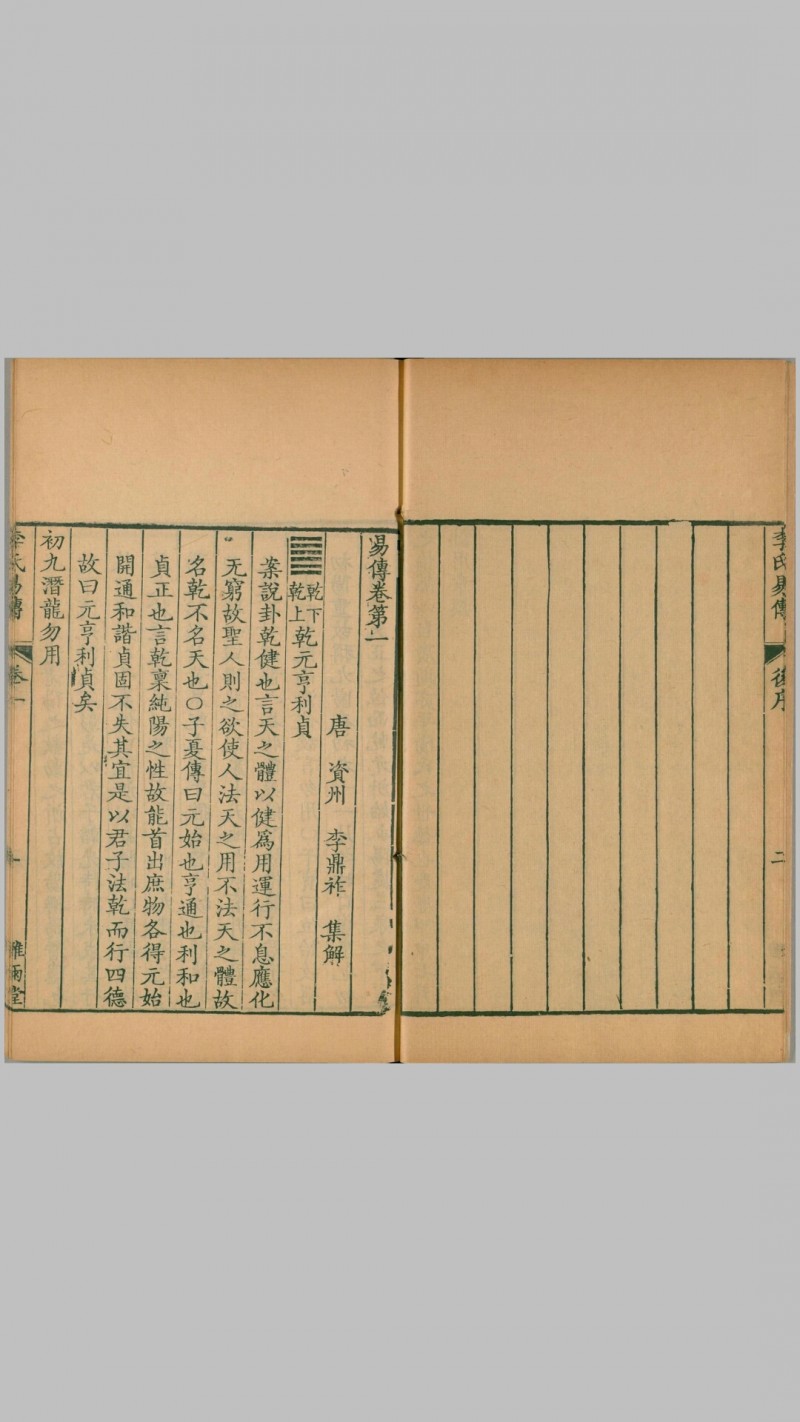 李氏易傳 後序 二
易傳卷第一
唐 資州 李鼎祚 集解
乾下乾上乾元亨利貞
案說卦乾健也言天之體以健爲用運行不息應化
无窮故聖人則之欲使人法天之用不法天之體故
名乾不名天也〇子夏傳曰元始也亨通也利和也
貞正也言乾稟純陽之性故能首出庶物各得元始
開通和諧貞固不失其宜是以君子法乾而行四德
故曰元亨利貞矣
初九潛龍勿用
李氏易傳 卷一 一 雅雨堂